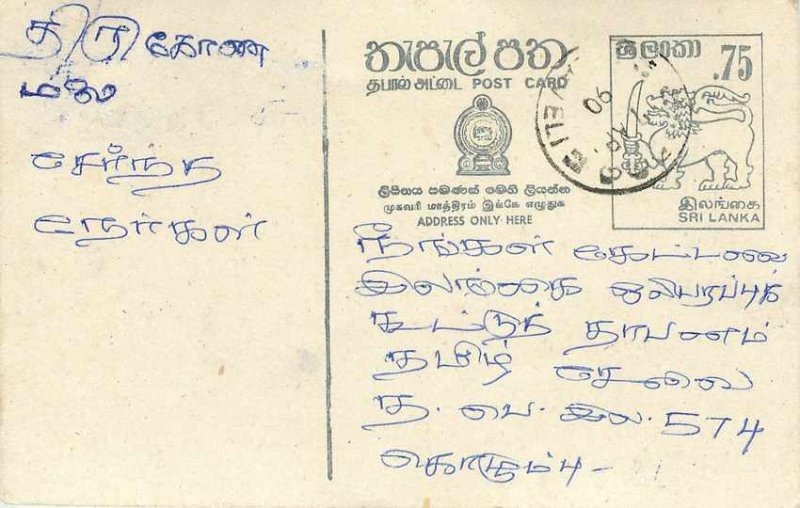 திருகோண
மலை
சேர்ந்த
நேயர்கள்
තැපැල් පත
தபால் அட்டை POST CARD
ලිපිනය පමණක් මෙහි ලියන්න
முகவரி மாத்திரம் இங்கே எழுதுக
ADDRESS ONLY HERE
ශ්‍රී ලංකා
.75
இலங்கை
SRI LANKA
90
நீங்கள் கேட்டவை
இலங்கை ஒலிபரப்புக்
கூட்டுத் தாபனம்
தமிழ் சேவை
த. பெ. இல. 574
கொழும்பு -